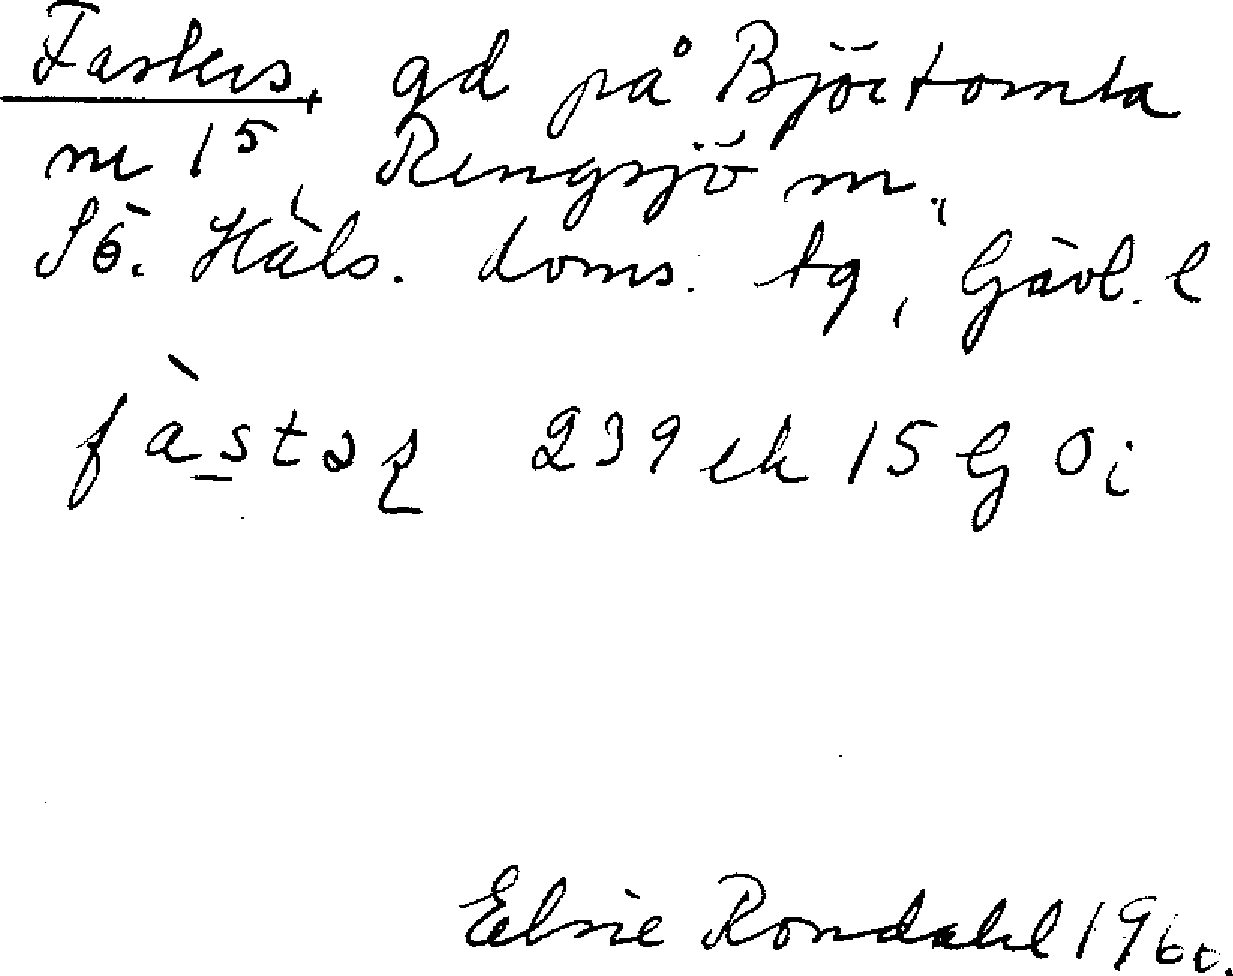 Fasters, gd på Björtomta
nr 1⁵, Rengsjö sn,
Sö. Häls. doms. tg, Gävl. l
fàstaʂ 239 ek 15 G Oi
Elsie Rondahl 1960.